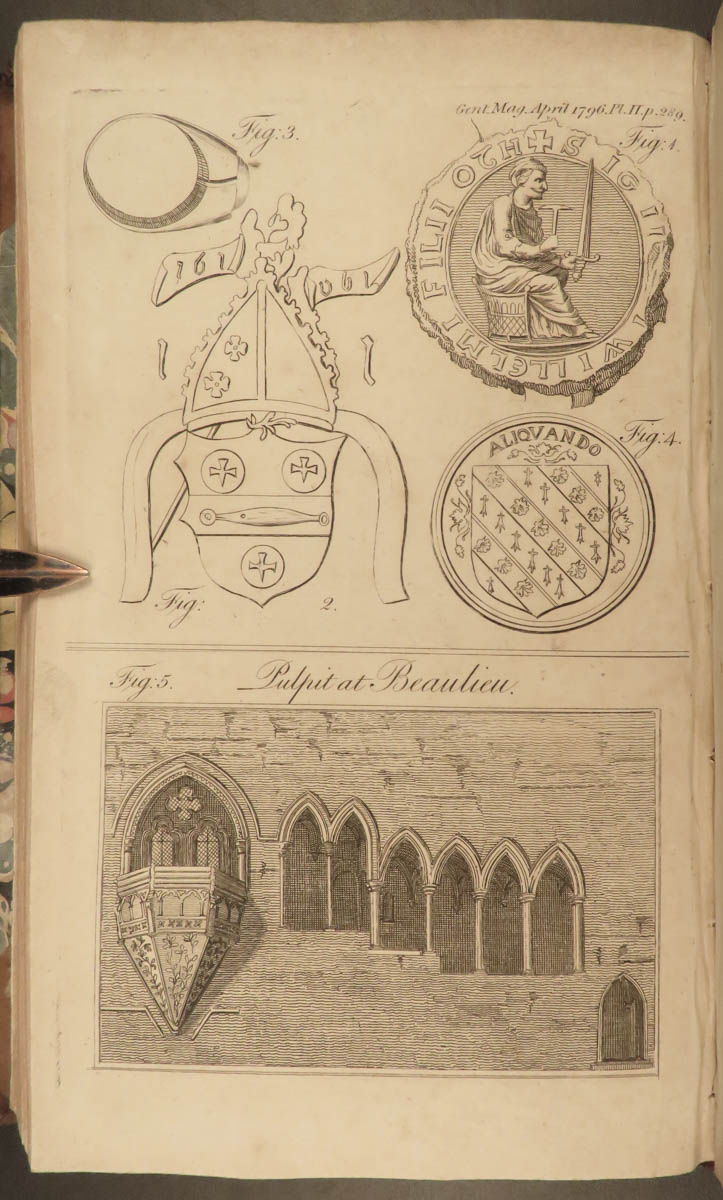 Gent. Mag. April 1796. Pl. II. p. 289.
Fig: 3.
Fig: 1.
✠ SIGILLI WILLELMI FILII OTH
Fig: 4.
ALIQVANDO
Fig: 2.
Fig: 5.
Pulpit at Beaulieu.